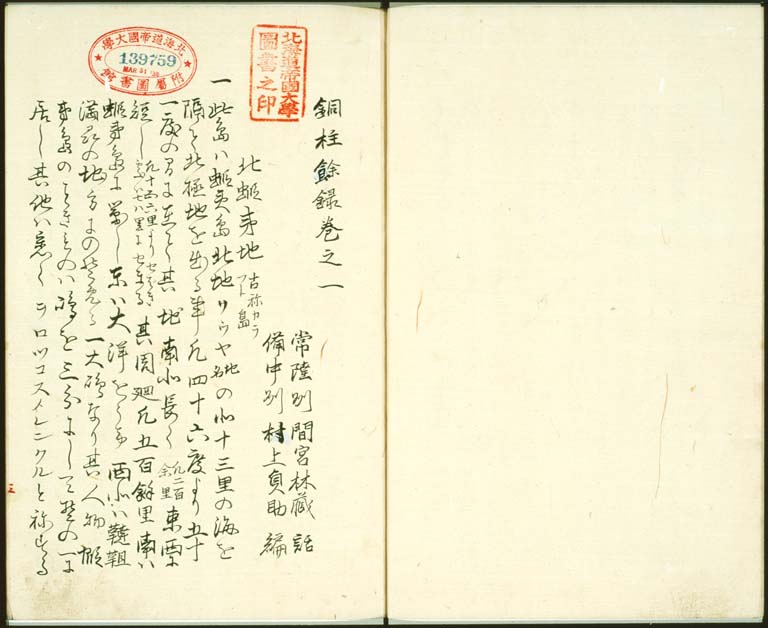 銅柱餘録巻之一
常陸州 間宮林藏 話
備中州 村上貞助 編
北蝦夷地 古称カラフト島
一 此島ハ蝦夷島北地ソウヤ地名の北十三里の海を
隔て北極地を出る事凡四十六度より五十
一度の間に在て其地南北長く凡二百余里東西に
短し 其周廻凡五百餘里南ハ
蝦夷島に對し東ハ大洋をうけ西北ハ韃靼
満州の地方に 一大嶋なり其人物
夷島の ハ嶋を三分にして の一に
居し其他ハ悉くヲロツコスメレンクルと称する
北海道帝國大學圖書之印
北海道帝國大學附屬圖書館
139759
MAR 31